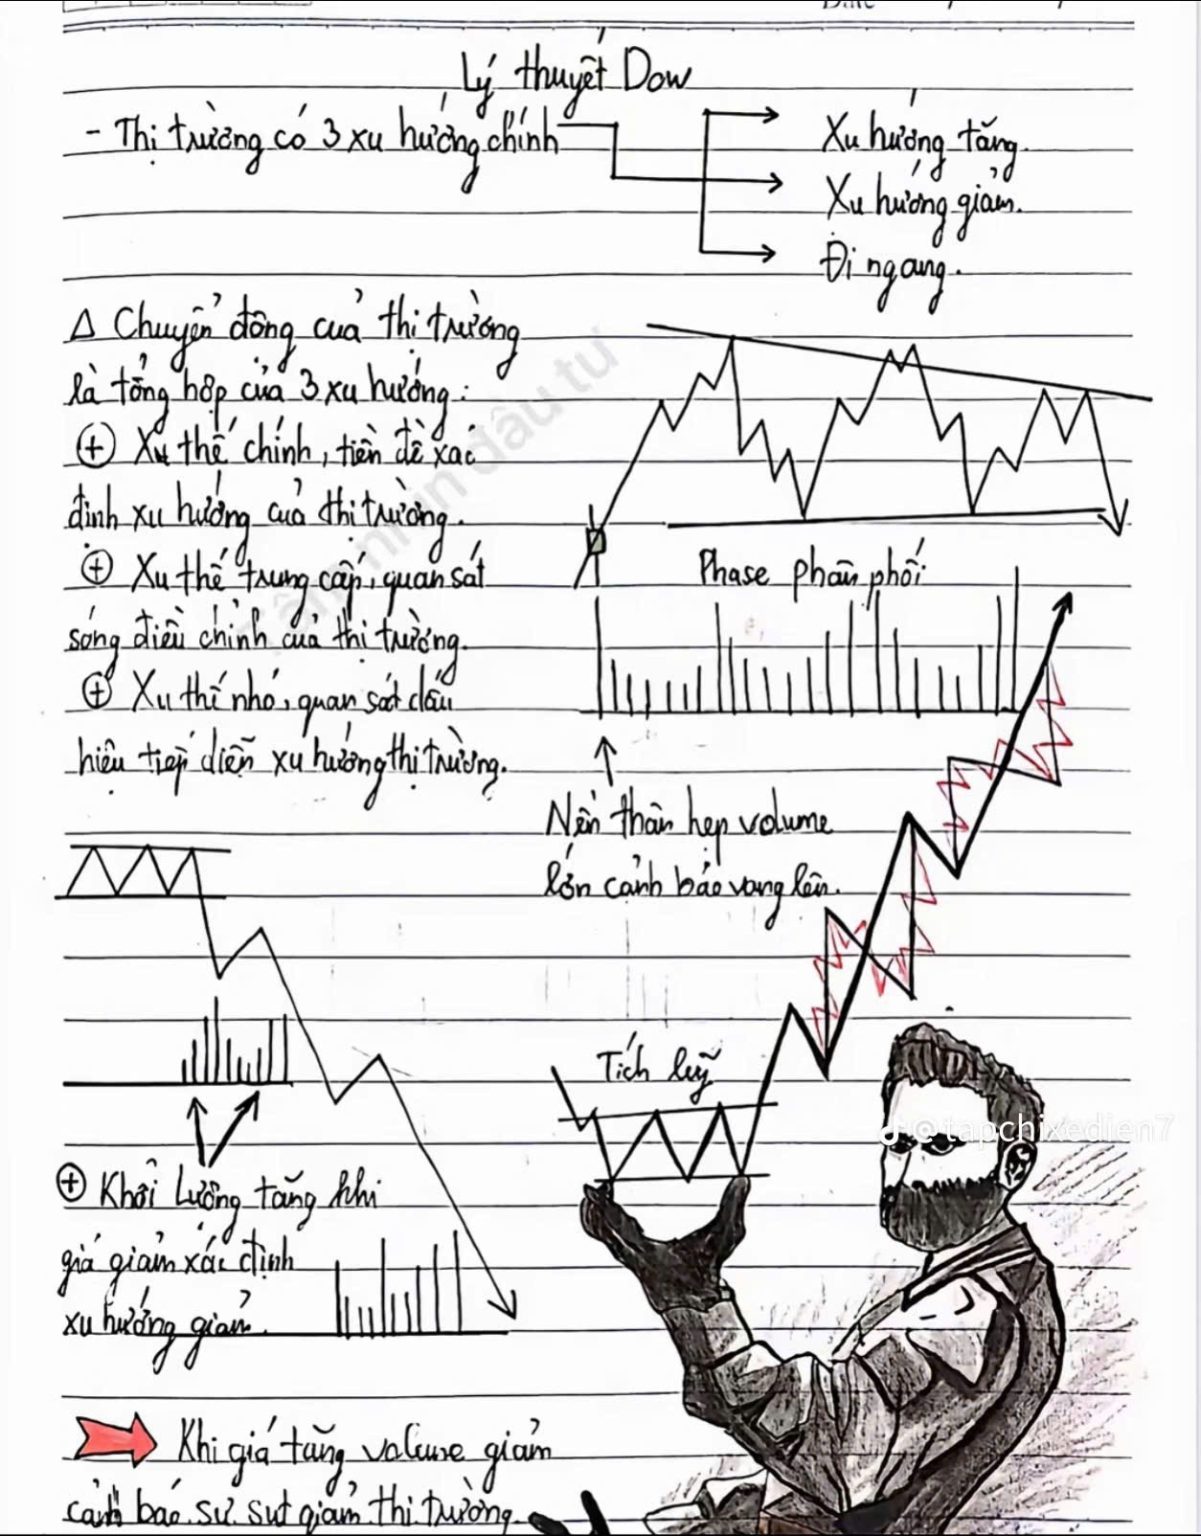 Date
Lý thuyết Dow
- Thị trường có 3 xu hướng chính
Xu hướng tăng.
Xu hướng giảm.
Đi ngang.
Δ Chuyển động của thị trường
là tổng hợp của 3 xu hướng:
⊕ Xu thế chính, tiền đề xác
định xu hướng của thị trường.
⊕ Xu thế trung cấp, quan sát
sóng điều chỉnh của thị trường.
⊕ Xu thế nhỏ, quan sát dấu
hiệu tiếp diễn xu hướng thị trường.
Phase phân phối
Nến thân hẹp volume
lớn cảnh báo vang lên.
Tích luỹ
⊕ Khối Lượng tăng khi
giá giảm xác định
xu hướng giảm.
Khi giá tăng volume giảm
cảnh báo sự sụt giảm thị trường.
nhìn đầu tư
@tapchixedien7